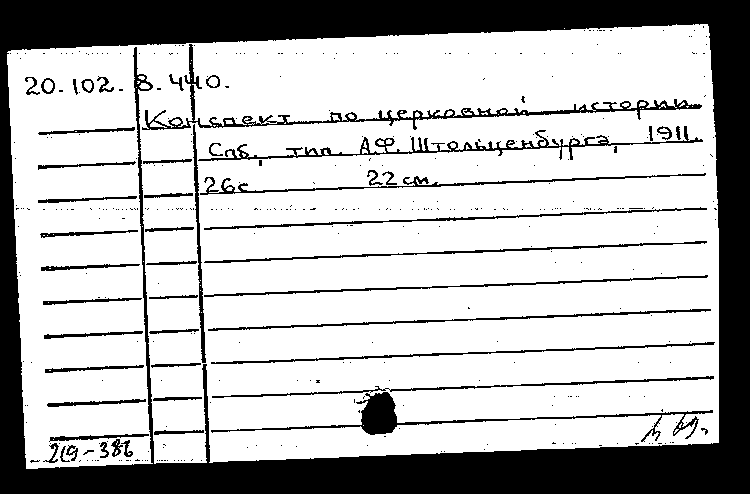 20.102.8.440.
Конспект по церковной истории
Спб., тип. А.Ф. Штольценбурга, 1911.
26с 22см.
219-386